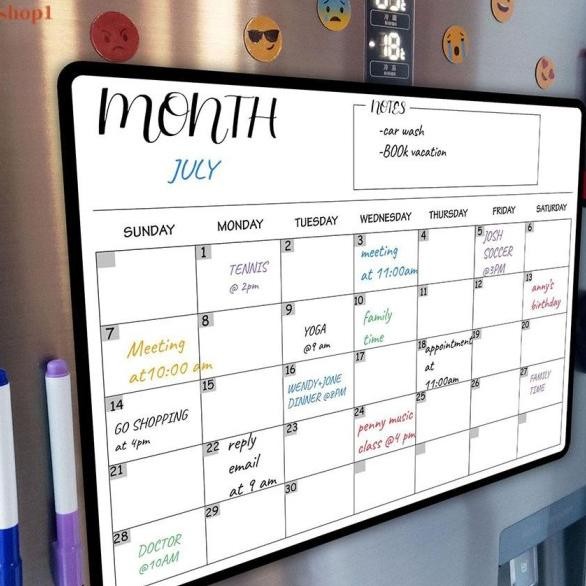 shop1
MONTH
JULY
NOTES
-car wash
-BOOk vacation
SUNDAY MONDAY TUESDAY WEDNESDAY THURSDAY FRIDAY SATURDAY
1 2 3 4 5 6
TENNIS
@ 2pm
meeting
at 11:00am
JOSH
SOCCER
@3PM
7 8 9 10 11 12 13
Meeting
at10:00 am
YOGA
@9 am
family
time
anny's
birthday
14 15 16 17 18 19 20
GO SHOPPING
at 4pm
WENDY+JONE
DINNER @8PM
appointment
at
11:00am
21 22 23 24 25 26 27
reply
email
at 9 am
penny music
class @4 pm
FAMILY
TIME
28 29 30
DOCTOR
@10AM